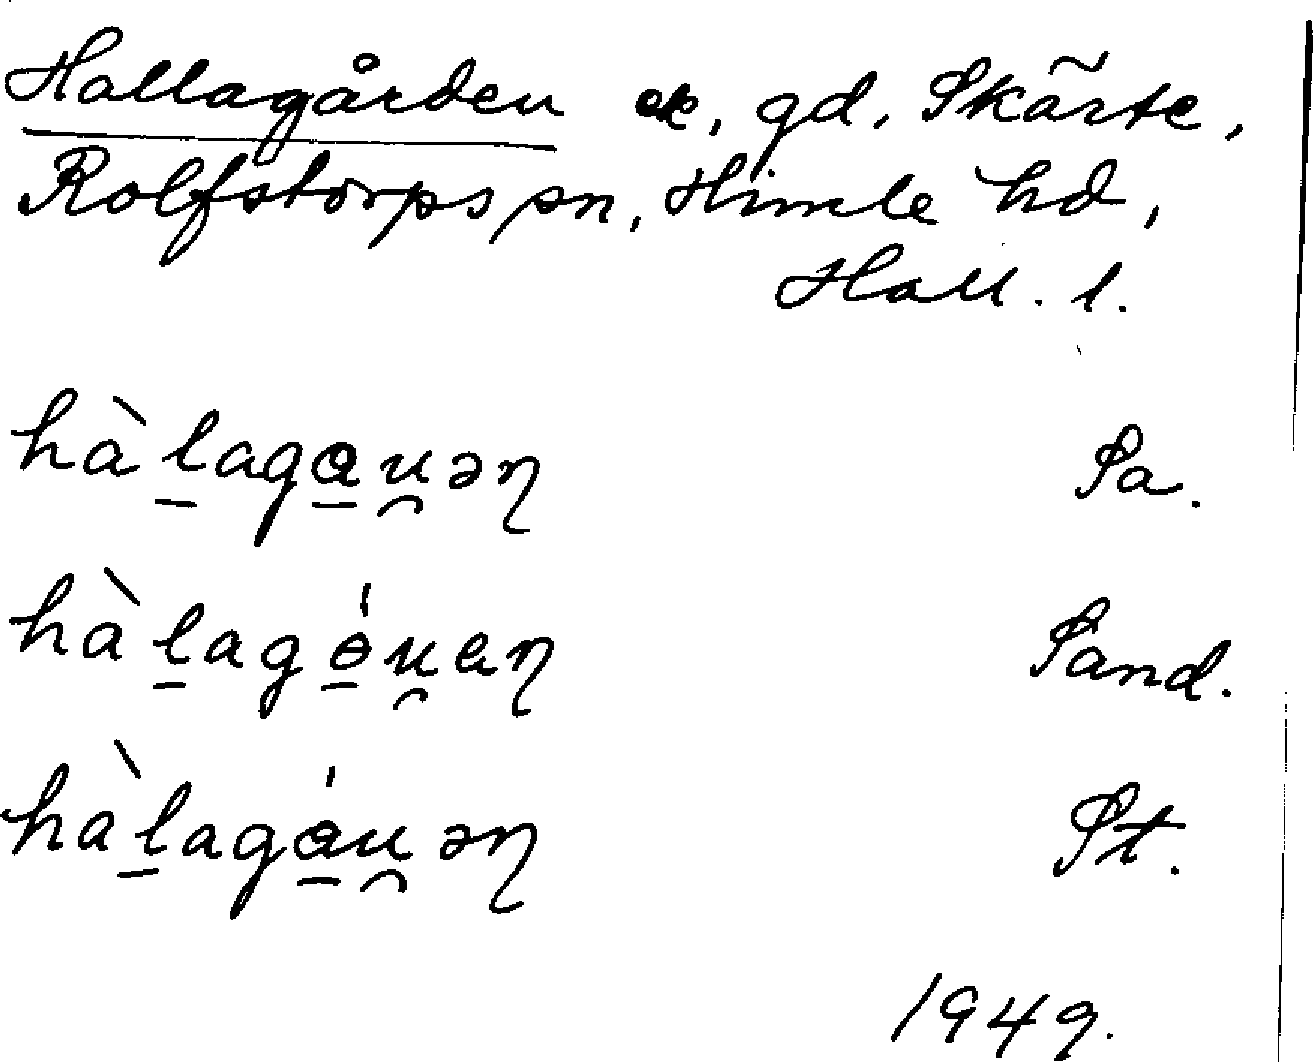 Hallagården ek, gd, Skärte,
Rolfstorps sn, Himle hd,
Hall. l.
hàl̲aga̲u̯əŋ Sa.
hàl̲agɵ̲́u̯eŋ Sand.
hàl̲agá̲u̯əŋ St.
1949.